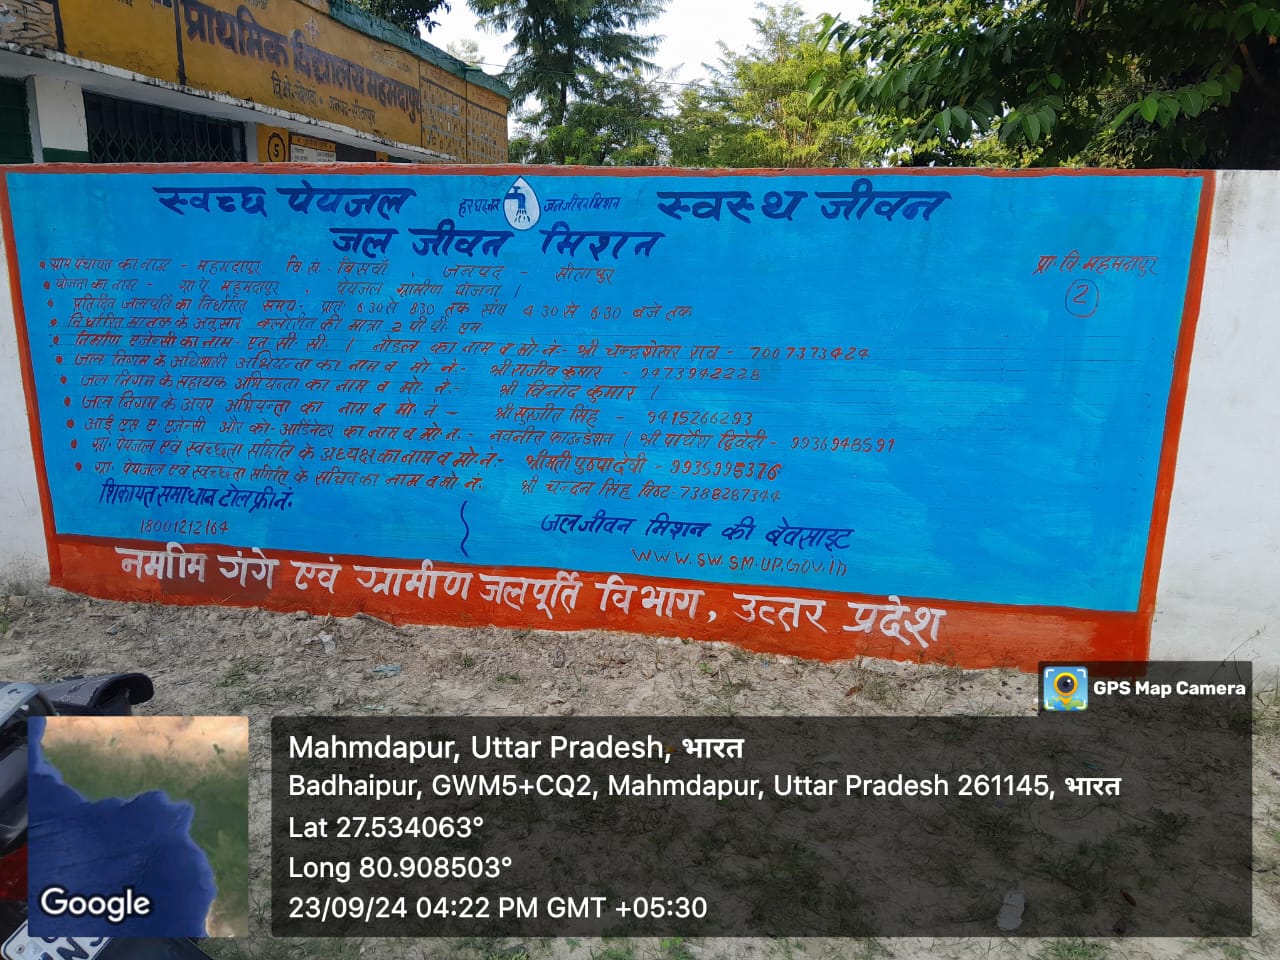 प्राथमिक विद्यालय महमदापुर
5
स्वच्छ पेयजल हर घर जल जल जीवन मिशन स्वस्थ जीवन
जल जीवन मिशन
• ग्राम पंचायत का नाम - महमदापुर वि.खं. बिसवाँ जनपद - सीतापुर
प्रा. वि. महमदापुर
2
• योजना का नाम - ग्रा.पं. महमदापुर, पेयजल ग्रामीण योजना।
• प्रतिदिन जलपूर्ति का निर्धारित समय - प्रातः 6.30 से 8.30 तक सांय 4.30 से 6.30 बजे तक
• निर्धारित मानक के अनुसार क्लोरीन की मात्रा 2 पी.पी. एम.
• निर्माण एजेन्सी का नाम - एन. सी. सी. । नोडल का नाम व मो. नं.- श्री चन्द्रशेखर राव - 7007373424
• जल निगम के अधिशासी अभियन्ता का नाम व मो. नं.- श्री राजीव कुमार - 9473942228
• जल निगम के सहायक अभियन्ता का नाम व मो. नं.- श्री विनोद कुमार ।
• जल निगम के अवर अभियन्ता का नाम व मो. नं - श्री सुरजीत सिंह - 9415266293
• आई. एस. ए. एजेन्सी और को-आर्डिनेटर का नाम व मो. न. - नवनीत फाउन्डेशन / श्री पार्थेश द्विवेदी - 9936948591
• ग्रा. पेयजल एवं स्वच्छता समिति के अध्यक्ष का नाम व मो. नं- श्रीमती पुष्पादेवी - 9935995376
• ग्रा. पेयजल एवं स्वच्छता समिति के सचिव का नाम व मो. नं. श्री चन्दन सिंह विष्ट - 7388287344
शिकायत समाधान टोल फ्री नं.
18001212164
जल जीवन मिशन की बेवसाइट
WWW.SWSM.UP.GOV.IN
नमामि गंगे एवं ग्रामीण जलपूर्ति विभाग, उत्तर प्रदेश
GPS Map Camera
Mahmdapur, Uttar Pradesh, भारत
Badhaipur, GWM5+CQ2, Mahmdapur, Uttar Pradesh 261145, भारत
Lat 27.534063°
Long 80.908503°
23/09/24 04:22 PM GMT +05:30
Google